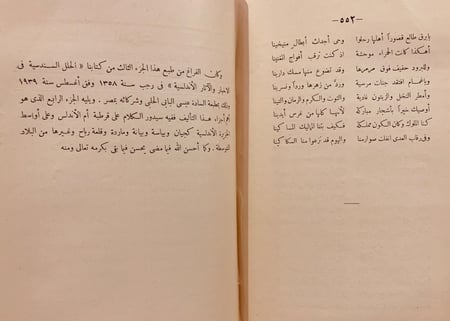 — ٥٥٢ —
يابرق طالع قصوراً أهلها رحلوا وحى أجداث أبطال منيخينا
أهكذا كانت الحمراء موحشة إذ كنت ترقب أفواج المغنينا
وللبرود حفيف فوق مرمرها وقد تضوع منها مسك دارينا
وياغمام افتقد جنات مرسية ورد من زهرها ورداً ونسرينا
وأمطر النخل والزيتون غادية والتوت والكرم والرمان والتينا
أوصيك خيراً بأشجار مباركة لأنها كلها من غرس أيدينا
كنا الملوك وكان الكون مملكة فكيف بتنا المماليك المساكينا
وفى رقاب العدى انفلت صوارمنا واليوم قد نزعوا منا السكاكينا
وكان الفراغ من طبع هذا الجزء الثالث من كتابنا « الحلل السندسية فى
الاخبار والآثار الأندلسية » فى رجب سنة ١٣٥٨ وفق أغسطس سنة ١٩٣٩
وذلك بمطبعة السادة عيسى البابى الحلبي وشركائه بمصر . ويليه الجزء الرابع الذى هو
أجزاء هذا التأليف ففيه سيدور الكلام على قرطبة أم الأندلس وعلى أواسط
الجزيرة الأندلسية كجيان وبياسة وبيانة وماردة وقلعة رباح وغيرها من البلاد
المتوسطة . وكما أحسن الله فيما مضى يحسن فيما بقى بكرمه تعالى ومنه